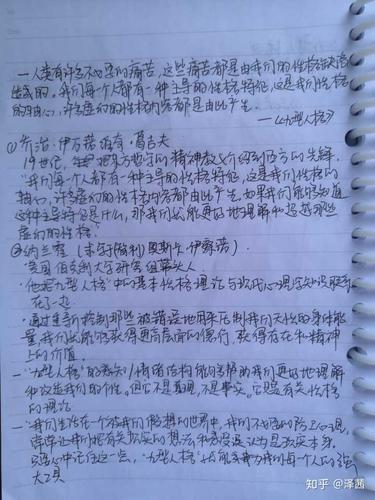 一人类有许多不必要的痛苦,这些痛苦都是由我们的性格缺陷
造成的。我们每个人都有一种主导的性格特征,这是我们性格
的轴心,许多虚幻的性格内容都是由此产生。
——《九型人格》
①乔治·伊万诺维奇·葛吉夫
19世纪,把东方哲学的精神教义介绍到西方的先锋。
“我们每个人都有一种主导的性格特征,这是我们性格的
轴心,许多虚幻的性格内容都由此产生。如果我们能够知道
这种主导特征是什么,那我们就能更好地理解和超越那些
虚幻的性格。”
②纳兰霍(求学于智利奥斯卡·伊察诺)
美国伯克利大学研究组带头人
·他把九型人格中的基本性格理论与现代心理学知识联系
在了一起
·通过重新控制那些被错误地用来压制我们天性的身体能
量,我们就能够获得更高层面的德行,获得存在和精神
上的价值。
一“九型人格”的激情/情绪结构能够帮助我们更好地理解
和改造我们的个性。但它不是真理,不是事实。它只是有关性格
的理论
一“我们生活在一个被我们假想的世界中,我们不必要的防卫心理,
常常让我们把有关现实的想法和感受误认为是现实本身。
只要心中记住这一点,“九型人格”就能成为我们每一个人的强
大工具
知乎 @泽茜